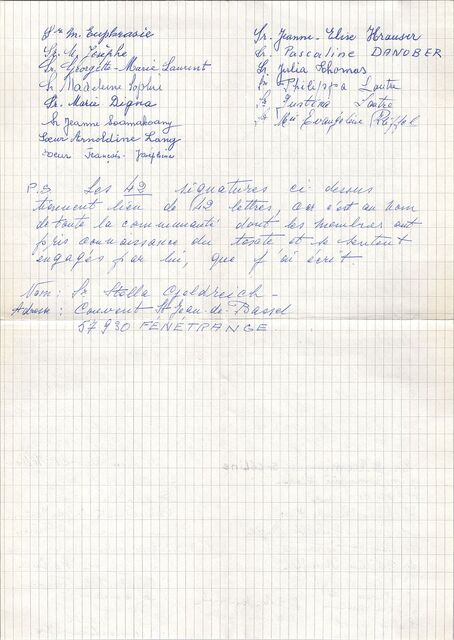 Sr M. Euphrasie
Sr. M. Josèphe
Sr. Georgette-Marie Laurent
Sr Madeleine Sophie
Sr. Marie Digna
Sr Jeanne
Sœur Arnoldine Lang
Soeur François-Joséphine
Sr. Jeanne-Elise Krauser
Sr Pascaline DANOBER
Sr. Julia Thomas
Sr Philippa
Sr Justina
Sr M. Evangéline
P.S Les 42 signatures ci-dessus
tiennent lieu de 42 lettres, car c'est au nom
de toute la communauté dont les membres ont
pris connaissance du texte et se sentent
engagés par lui, que j'ai écrit.
Nom : Sr Stella Goldreich -
Adresse : Couvent St Jean-de-Bassel
57930 FENETRANGE